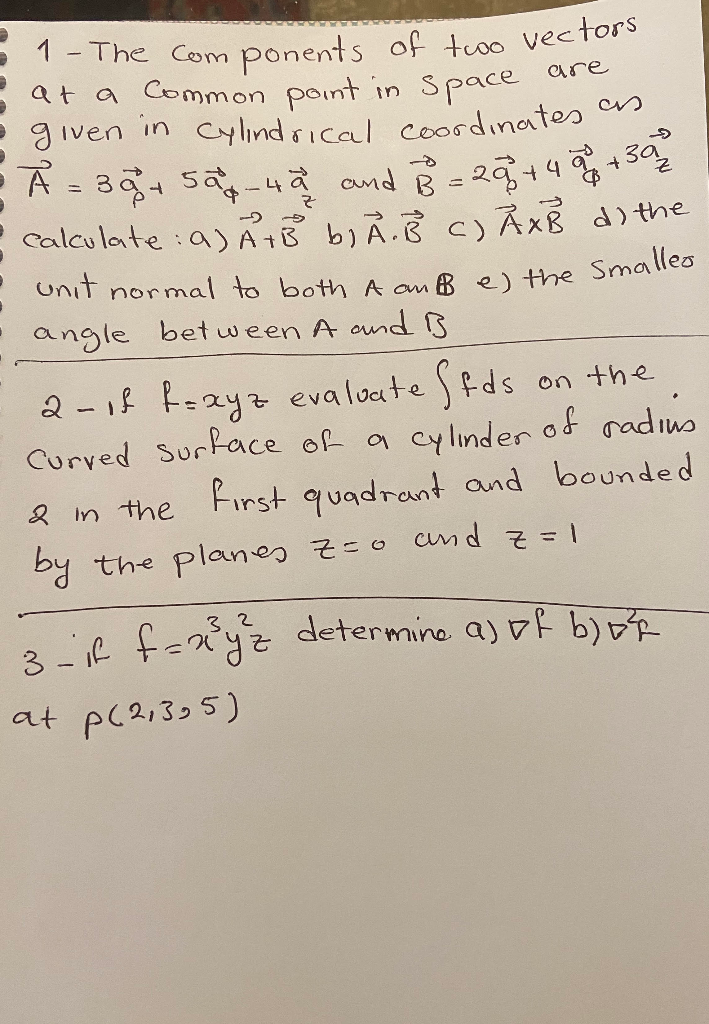 1 - The components of two vectors
at a common point in space are
given in cylindrical coordinates as
A⃗ = 3a⃗ρ + 5a⃗ϕ - 4a⃗z and B⃗ = 2a⃗ρ + 4a⃗ϕ + 3a⃗z
calculate : a) A⃗+B⃗ b) A⃗.B⃗ c) A⃗xB⃗ d) the
unit normal to both A an B e) the smaller
angle between A and B
2 - if f=xyz evaluate ∫fds on the
curved surface of a cylinder of radius
2 in the first quadrant and bounded
by the planes z=0 and z=1
3 - if f=x³y²z determine a) ∇f b) ∇²f
at p(2,3,5)